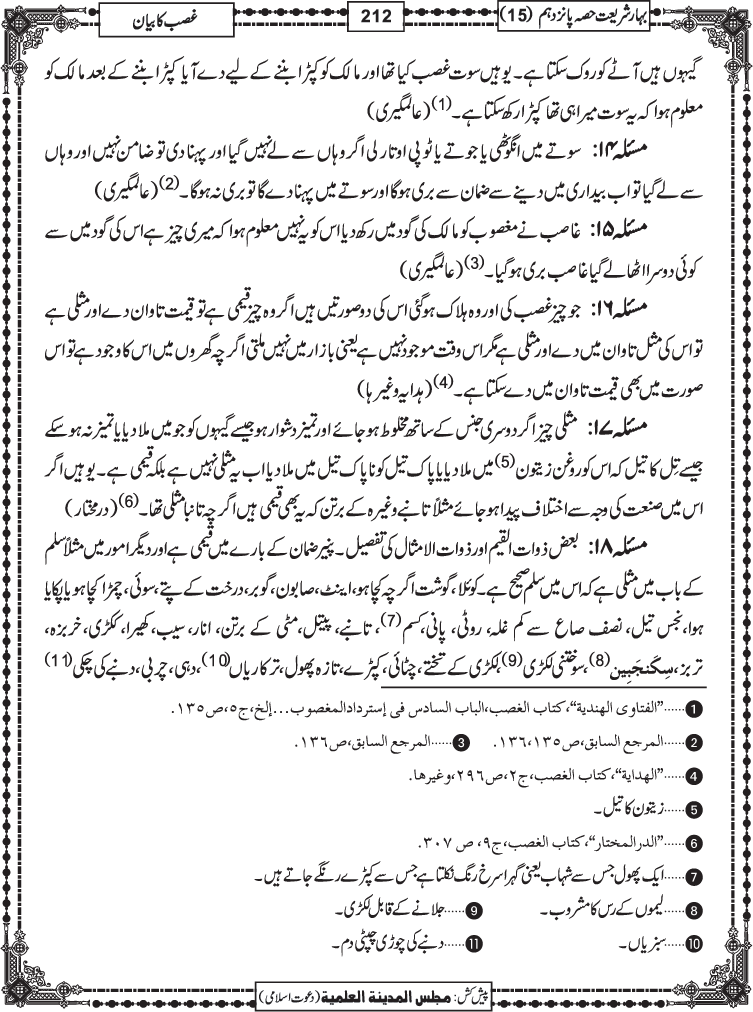 بہارِشریعت حصہ پانزدہم (15)
212
غصب کا بیان
گیہوں ہیں آٹے کو روک سکتا ہے۔ یوہیں سوت غصب کیا تھا اور مالک کو کپڑا بننے کے لیے دے آیا کپڑا بننے کے بعد مالک کو
معلوم ہوا کہ یہ سوت میرا ہی تھا کپڑا رکھ سکتا ہے۔(1) (عالمگیری)
مسئلہ ۱۴: سوتے میں انگوٹھی یا جوتے یا ٹوپی اوتار لی اگر وہاں سے لے نہیں گیا اور پہنا دی تو ضامن نہیں اور وہاں
سے لے گیا تو اب بیداری میں دینے سے ضمان سے بری ہوگا اور سوتے میں پہنا دے گا تو بری نہ ہوگا۔(2) (عالمگیری)
مسئلہ ۱۵: غاصب نے مغصوب کو مالک کی گود میں رکھ دیا اس کو یہ نہیں معلوم ہوا کہ میری چیز ہے اس کی گود میں سے
کوئی دوسرا اٹھا لے گیا غاصب بری ہوگیا۔(3) (عالمگیری)
مسئلہ ۱۶: جو چیز غصب کی اور وہ ہلاک ہوگئی اس کی دو صورتیں ہیں اگر وہ چیز قیمی ہے تو قیمت تاوان دے اور مثلی ہے
تو اس کی مثل تاوان میں دے اور مثلی ہے مگر اس وقت موجود نہیں ہے یعنی بازار میں نہیں ملتی اگرچہ گھروں میں اس کا وجود ہے تو اس
صورت میں بھی قیمت تاوان میں دے سکتا ہے۔(4) (ہدایہ وغیرہا)
مسئلہ ۱۷: مثلی چیز اگر دوسری جنس کے ساتھ مخلوط ہو جائے اور تمیز دشوار ہو جیسے گیہوں کو جو میں ملا دیا یا تمیز نہ ہو سکے
جیسے تِل کا تیل کہ اس کو روغن زیتون(5) میں ملا دیا یا پاک تیل کو ناپاک تیل میں ملا دیا اب یہ مثلی نہیں ہے بلکہ قیمی ہے۔ یوہیں اگر
اس میں صنعت کی وجہ سے اختلاف پیدا ہو جائے مثلاً تانبے وغیرہ کے برتن کہ یہ بھی قیمی ہیں اگرچہ تانبا مثلی تھا۔(6) (درمختار)
مسئلہ ۱۸: بعض ذوات القیم اور ذوات الامثال کی تفصیل۔ پنیر ضمان کے بارے میں قیمی ہے اور دیگر امور میں مثلاً سلم
کے باب میں مثلی ہے کہ اس میں سلم صحیح ہے۔ کوئلا، گوشت اگرچہ کچا ہو، اینٹ، صابون، گوبر، درخت کے پتے، سوئی، چمڑا کچا ہو یا پکایا
ہوا، نجس تیل، نصف صاع سے کم غلہ، روٹی، پانی، کسم(7)، تانبے، پیتل، مٹی کے برتن، انار، سیب، کھیرا، ککڑی، خربزہ،
تربز، سِکَنجَبِین(8)، سوختنی لکڑی(9)، لکڑی کے تختے، چٹائی، کپڑے، تازہ پھول، ترکاریاں(10)، دہی، چربی، دنبے کی چکی(11)
1......”الفتاوی الھندیة“،کتاب الغصب،الباب السادس فی إسترداد المغصوب...إلخ،ج۵،ص۱۳۵.
2......المرجع السابق،ص۱۳۵،۱۳۶. 3......المرجع السابق،ص۱۳۶.
4......”الھدایة“،کتاب الغصب،ج۲،ص۲۹۶،وغیرھا.
5......زیتون کا تیل۔
6......”الدرالمختار“،کتاب الغصب،ج۹،ص ۳۰۷.
7......ایک پھول جس سے شہاب یعنی گہرا سرخ رنگ نکلتا ہے جس سے کپڑے رنگے جاتے ہیں۔
8......لیموں کے رس کا مشروب۔ 9......جلانے کے قابل لکڑی۔
10......سبزیاں۔ 11......دنبے کی چوڑی چپٹی دم۔
پیش کش: مجلس المدینة العلمیة (دعوت اسلامی)